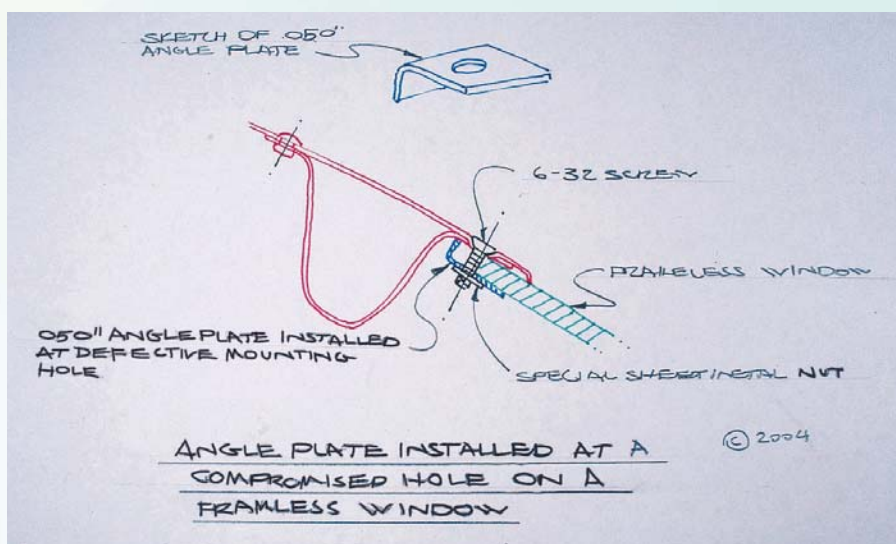 SKETCH OF .050"
ANGLE PLATE
6-32 SCREW
FRAMELESS WINDOW
050" ANGLE PLATE INSTALLED
AT DEFECTIVE MOUNTING
HOLE
SPECIAL SHEETMETAL NUT
ANGLE PLATE INSTALLED AT A
COMPROMISED HOLE ON A
FRAMLESS WINDOW
© 2004